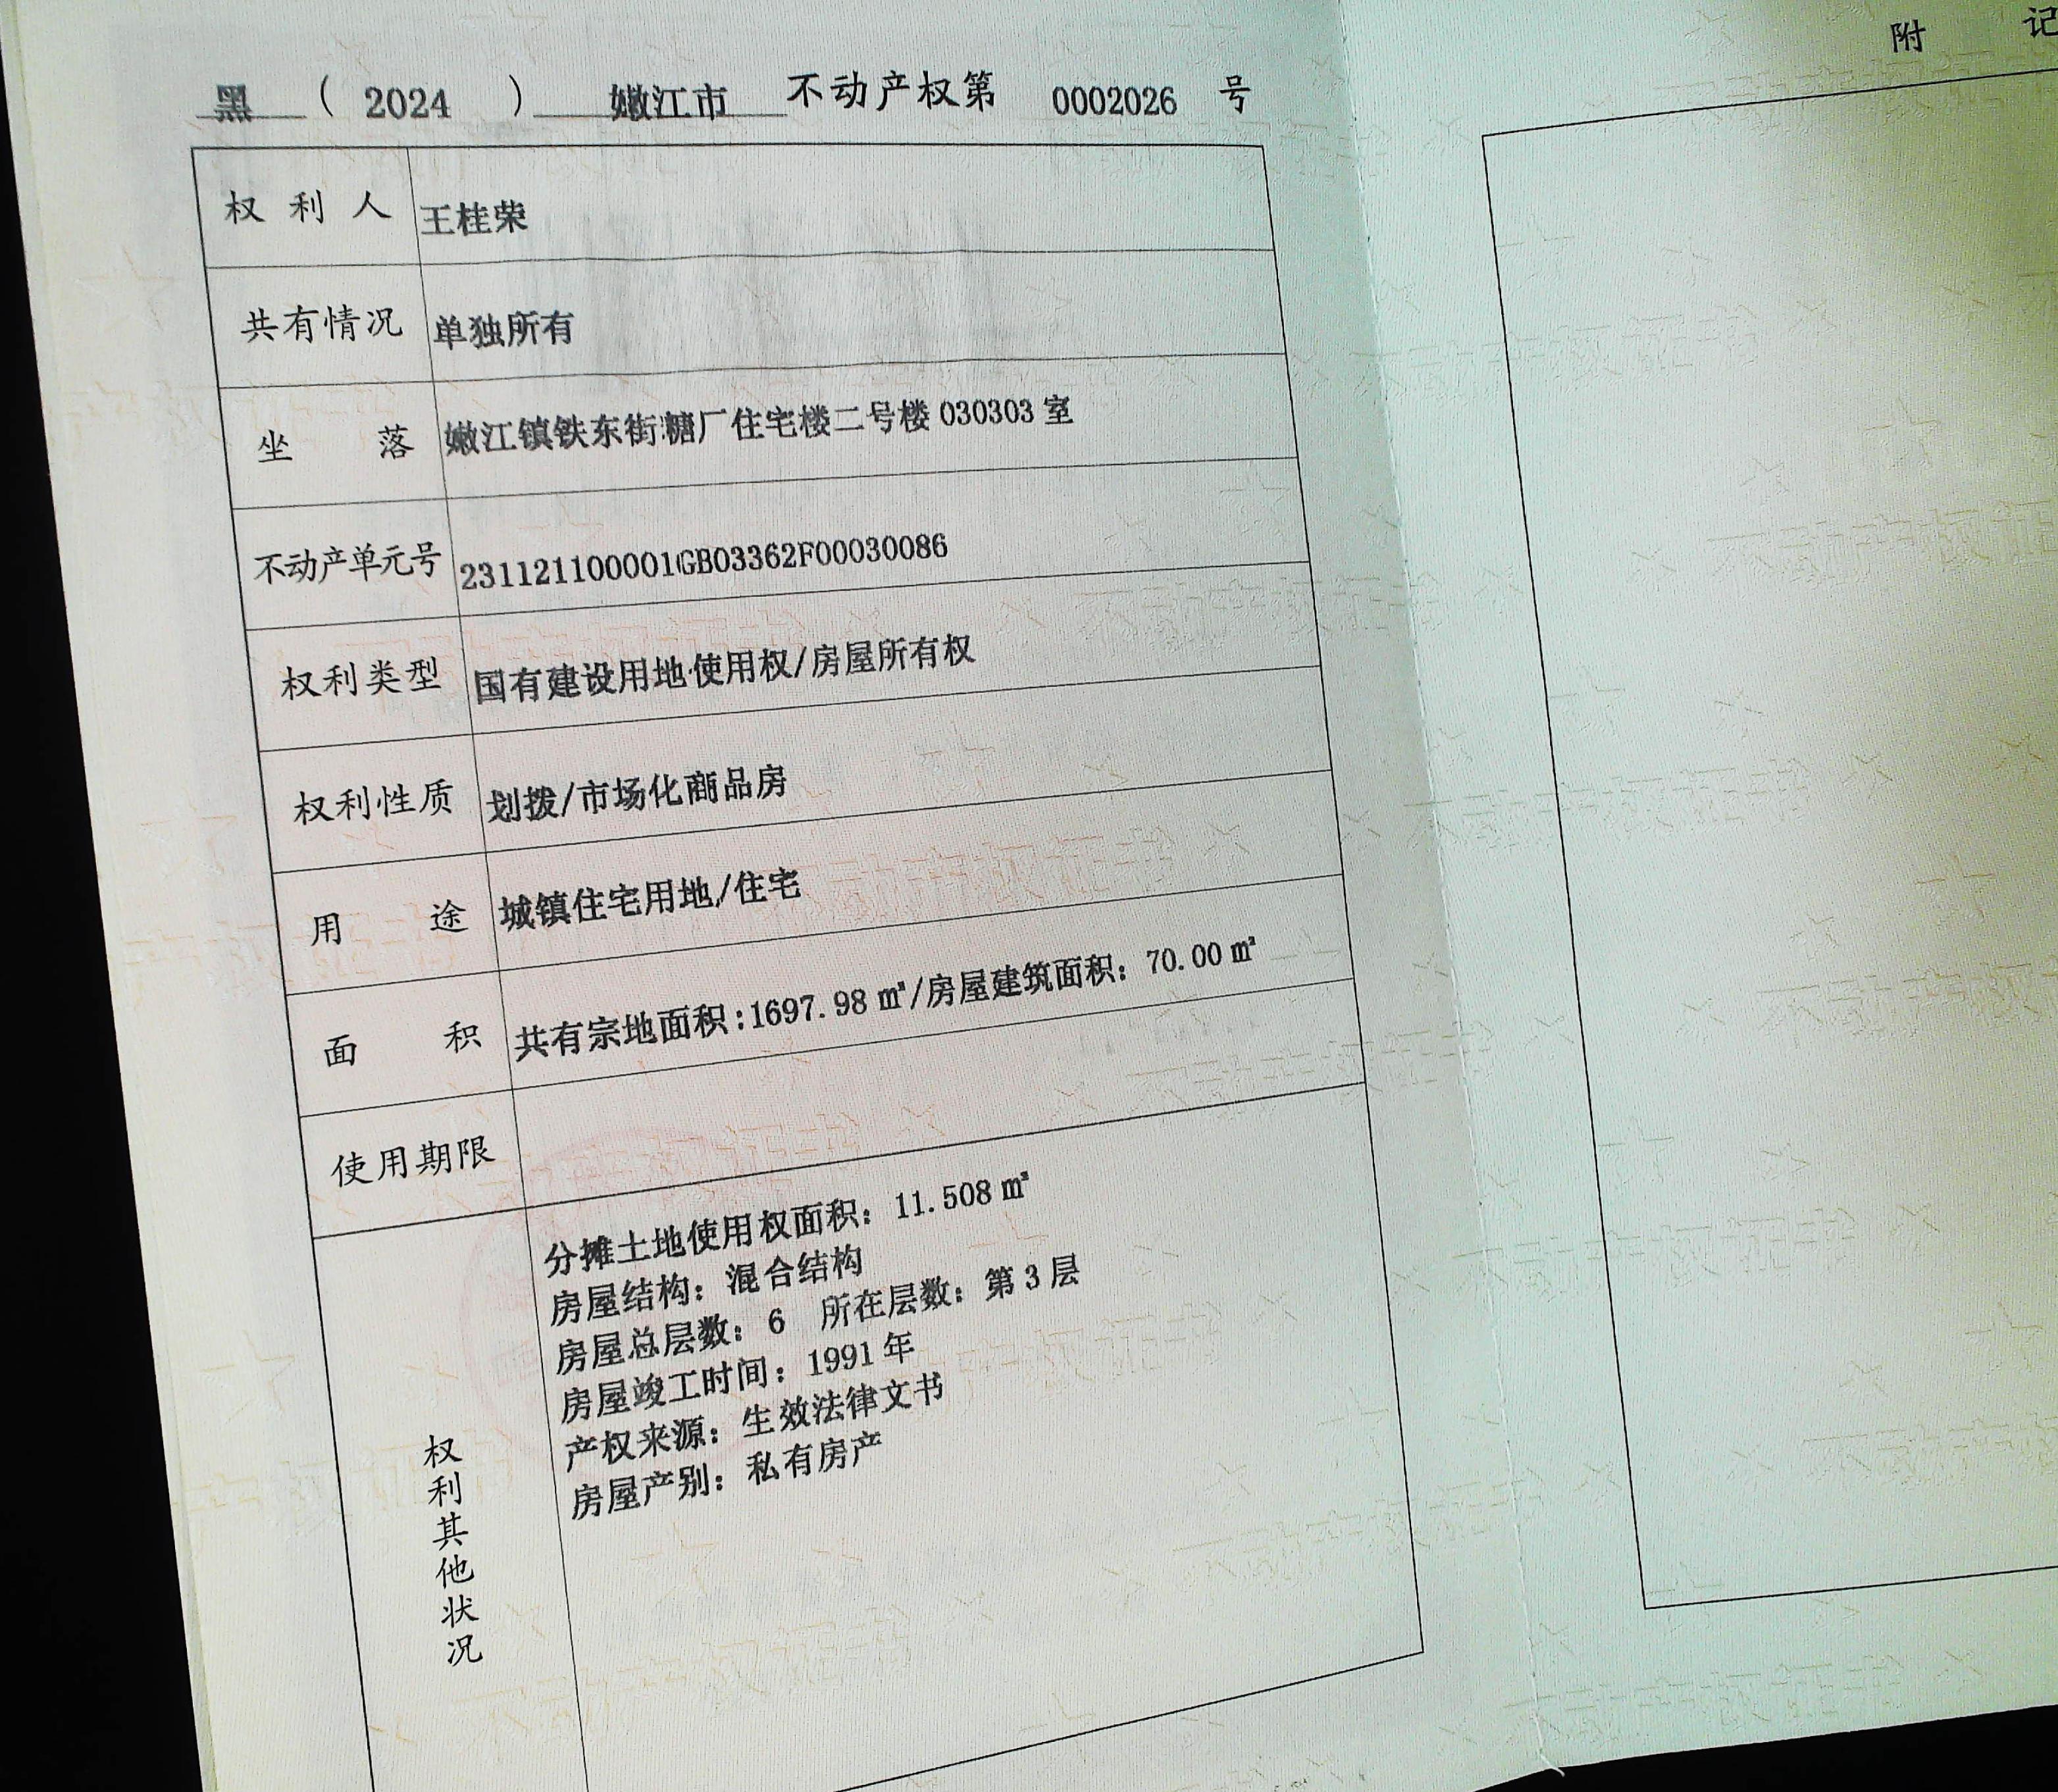 黑 ( 2024 ) 嫩江市 不动产权第 0002026 号
权利人 王桂荣
共有情况 单独所有
坐落 嫩江镇铁东街糖厂住宅楼二号楼 030303 室
不动产单元号 231121100001GB03362F00030086
权利类型 国有建设用地使用权/房屋所有权
权利性质 划拨/市场化商品房
用途 城镇住宅用地/住宅
面积 共有宗地面积:1697.98 ㎡/房屋建筑面积: 70.00 ㎡
使用期限
权利其他状况
分摊土地使用权面积: 11.508 ㎡
房屋结构: 混合结构
房屋总层数: 6 所在层数: 第 3 层
房屋竣工时间: 1991 年
产权来源: 生效法律文书
房屋产别: 私有房产
附 记